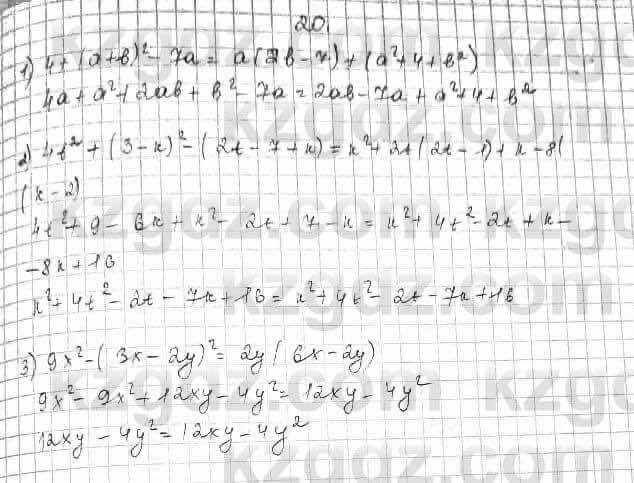 20.
1) 4+(a+b)²-7a=a(2b-7)+(a²+4+b²)
4a+a²+2ab+b²-7a=2ab-7a+a²+4+b²
2) 4t²+(3-k)²-(2t-7+k)=k²+2t(2t-1)+k-8(
(k-2)
4t²+9-6k+k²-2t+7-k=k²+4t²-2t+k-
-8k+16
k²+4t²-2t-7k+16=k²+4t²-2t-7k+16
3) 9x²-(3x-2y)²=2y(6x-2y)
9x²-9x²+12xy-4y²=12xy-4y²
12xy-4y²=12xy-4y²
kzgdz.com